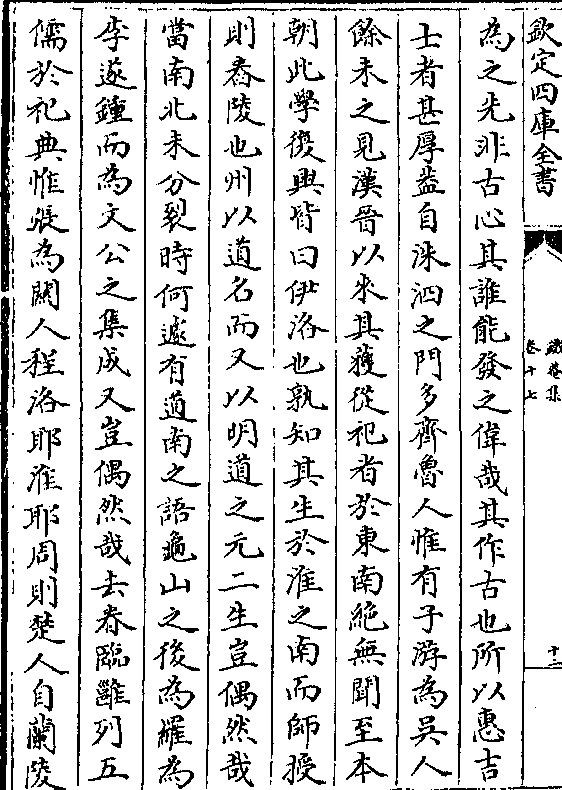 欽定四庫全書
卷十七
十二
為之先非古心其誰能發之偉哉其作古也所以惠吉
士者甚厚蓋自洙泗之門多齊魯人惟有子游為吳人
餘未之見漢晉以來其獲從祀者於東南絶無聞至本
朝此學復興皆曰伊洛也孰知其生於淮之南而師授
則舂陵也州以道名而又以明道之元二生豈偶然哉
當南北未分裂時何遽有道南之語龜山之後為羅為
李遂鍾而為文公之集成又豈偶然哉去春臨雝列五
儒於祀典惟張為關人程洛耶淮耶周則楚人自蘭陵